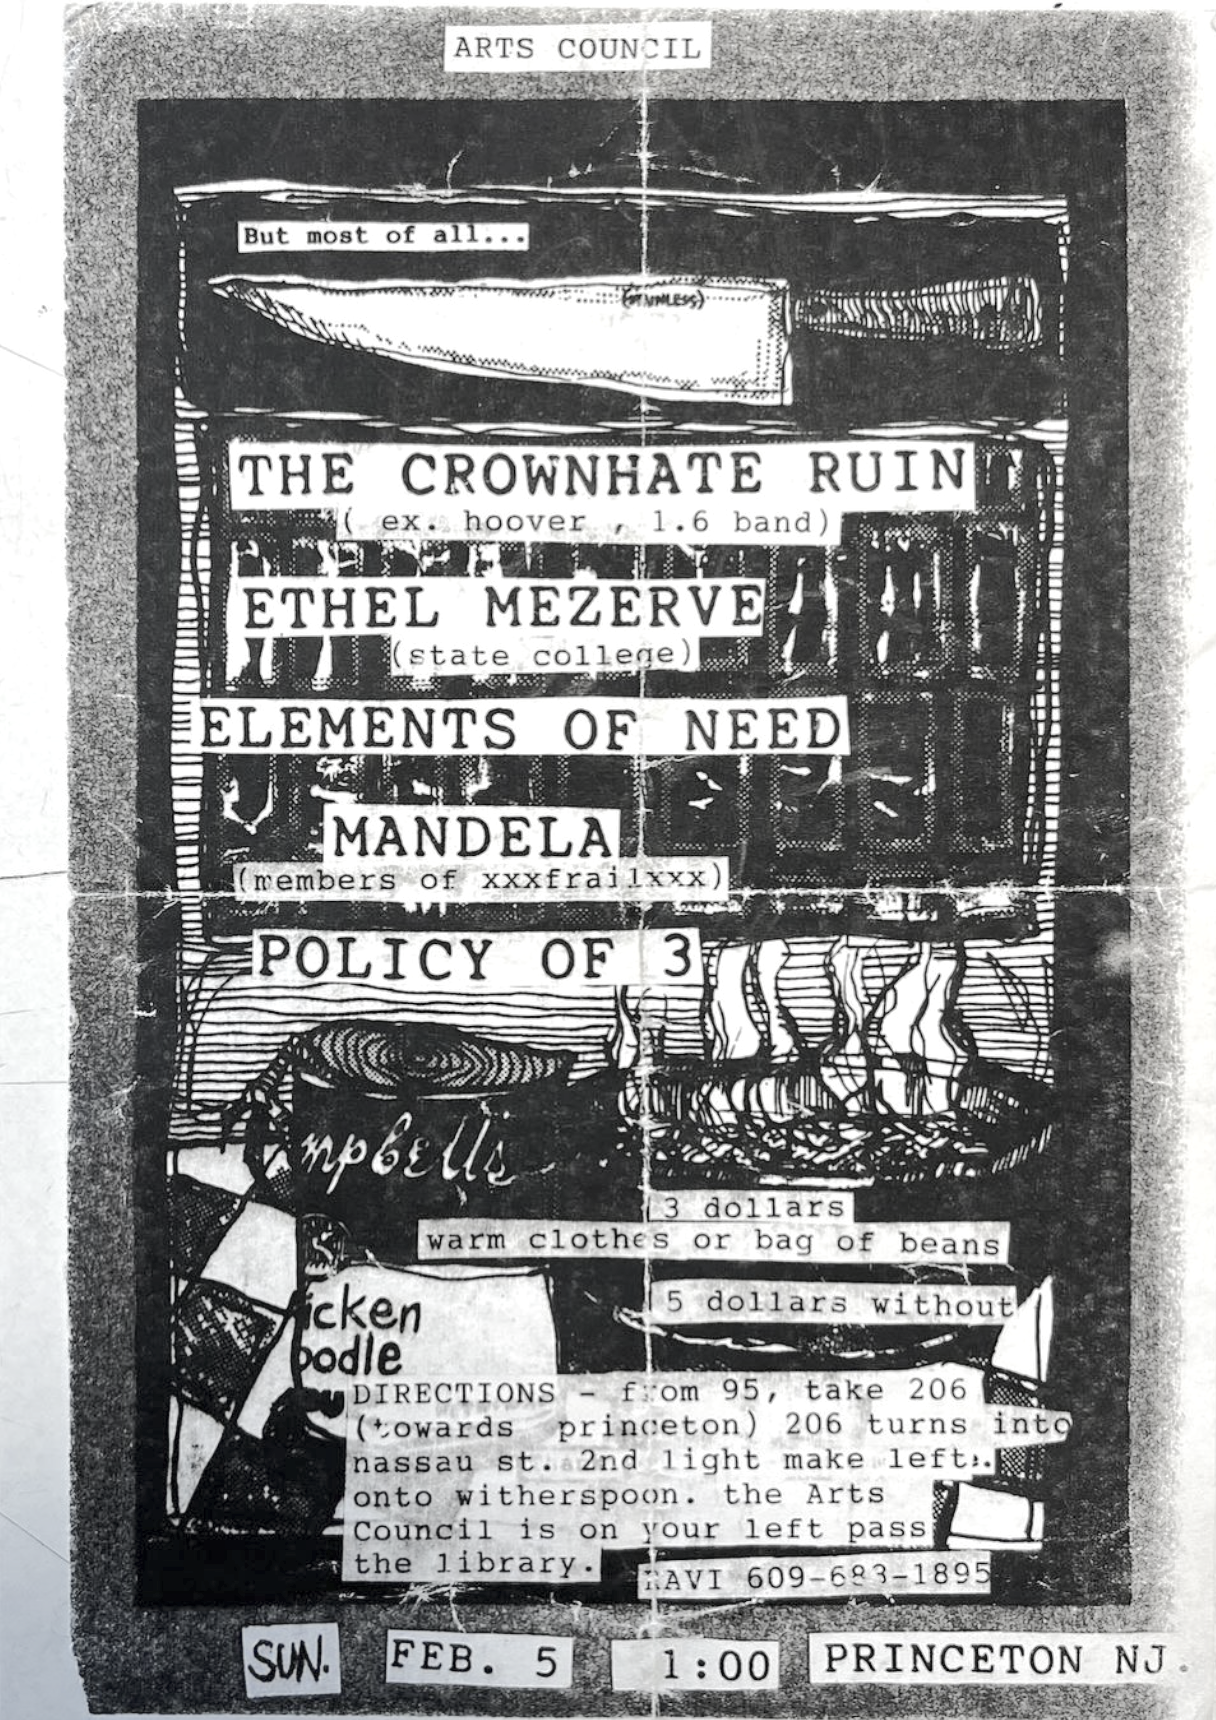 ARTS COUNCIL
But most of all...
(STAINLESS)
THE CROWNHATE RUIN
( ex. hoover , 1.6 band)
ETHEL MEZERVE
(state college)
ELEMENTS OF NEED
MANDELA
(members of xxxfrailxxx)
POLICY OF 3
mpbells
3 dollars
warm clothes or bag of beans
5 dollars without
icken
oodle
DIRECTIONS - from 95, take 206
(towards princeton) 206 turns into
nassau st. 2nd light make left.
onto witherspoon. the Arts
Council is on your left pass
the library.
RAVI 609-683-1895
SUN. FEB. 5 1:00 PRINCETON NJ.